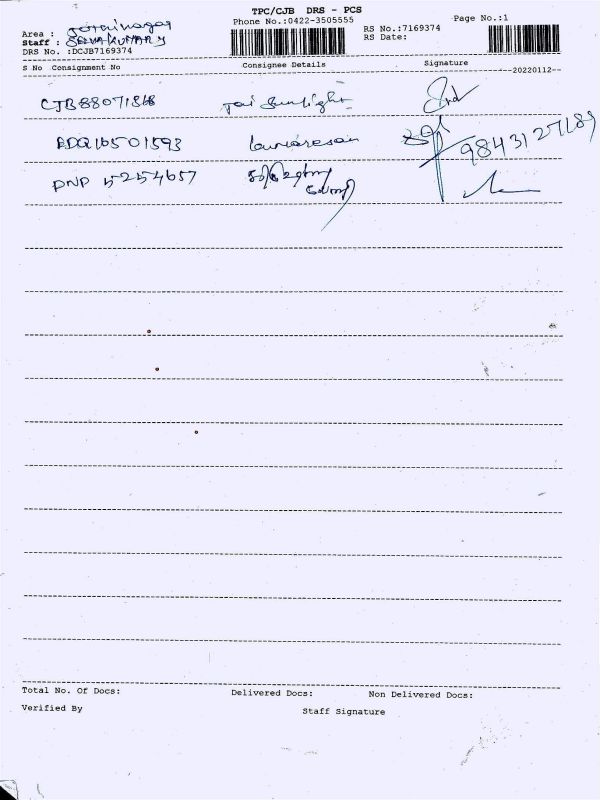 TPC/CJB DRS - PCS
Phone No.:0422-3505555
Page No.:1
Area :
Staff : SELVAKUMAR
DRS No. :DCJB7169374
RS No.:7169374
RS Date:
S No Consignment No Consignee Details Signature
--20220112--
CJB88071868 Jai Sunlight
BDQ16501593 9843127189
PNP 5254657
Total No. Of Docs: Delivered Docs: Non Delivered Docs:
Verified By Staff Signature